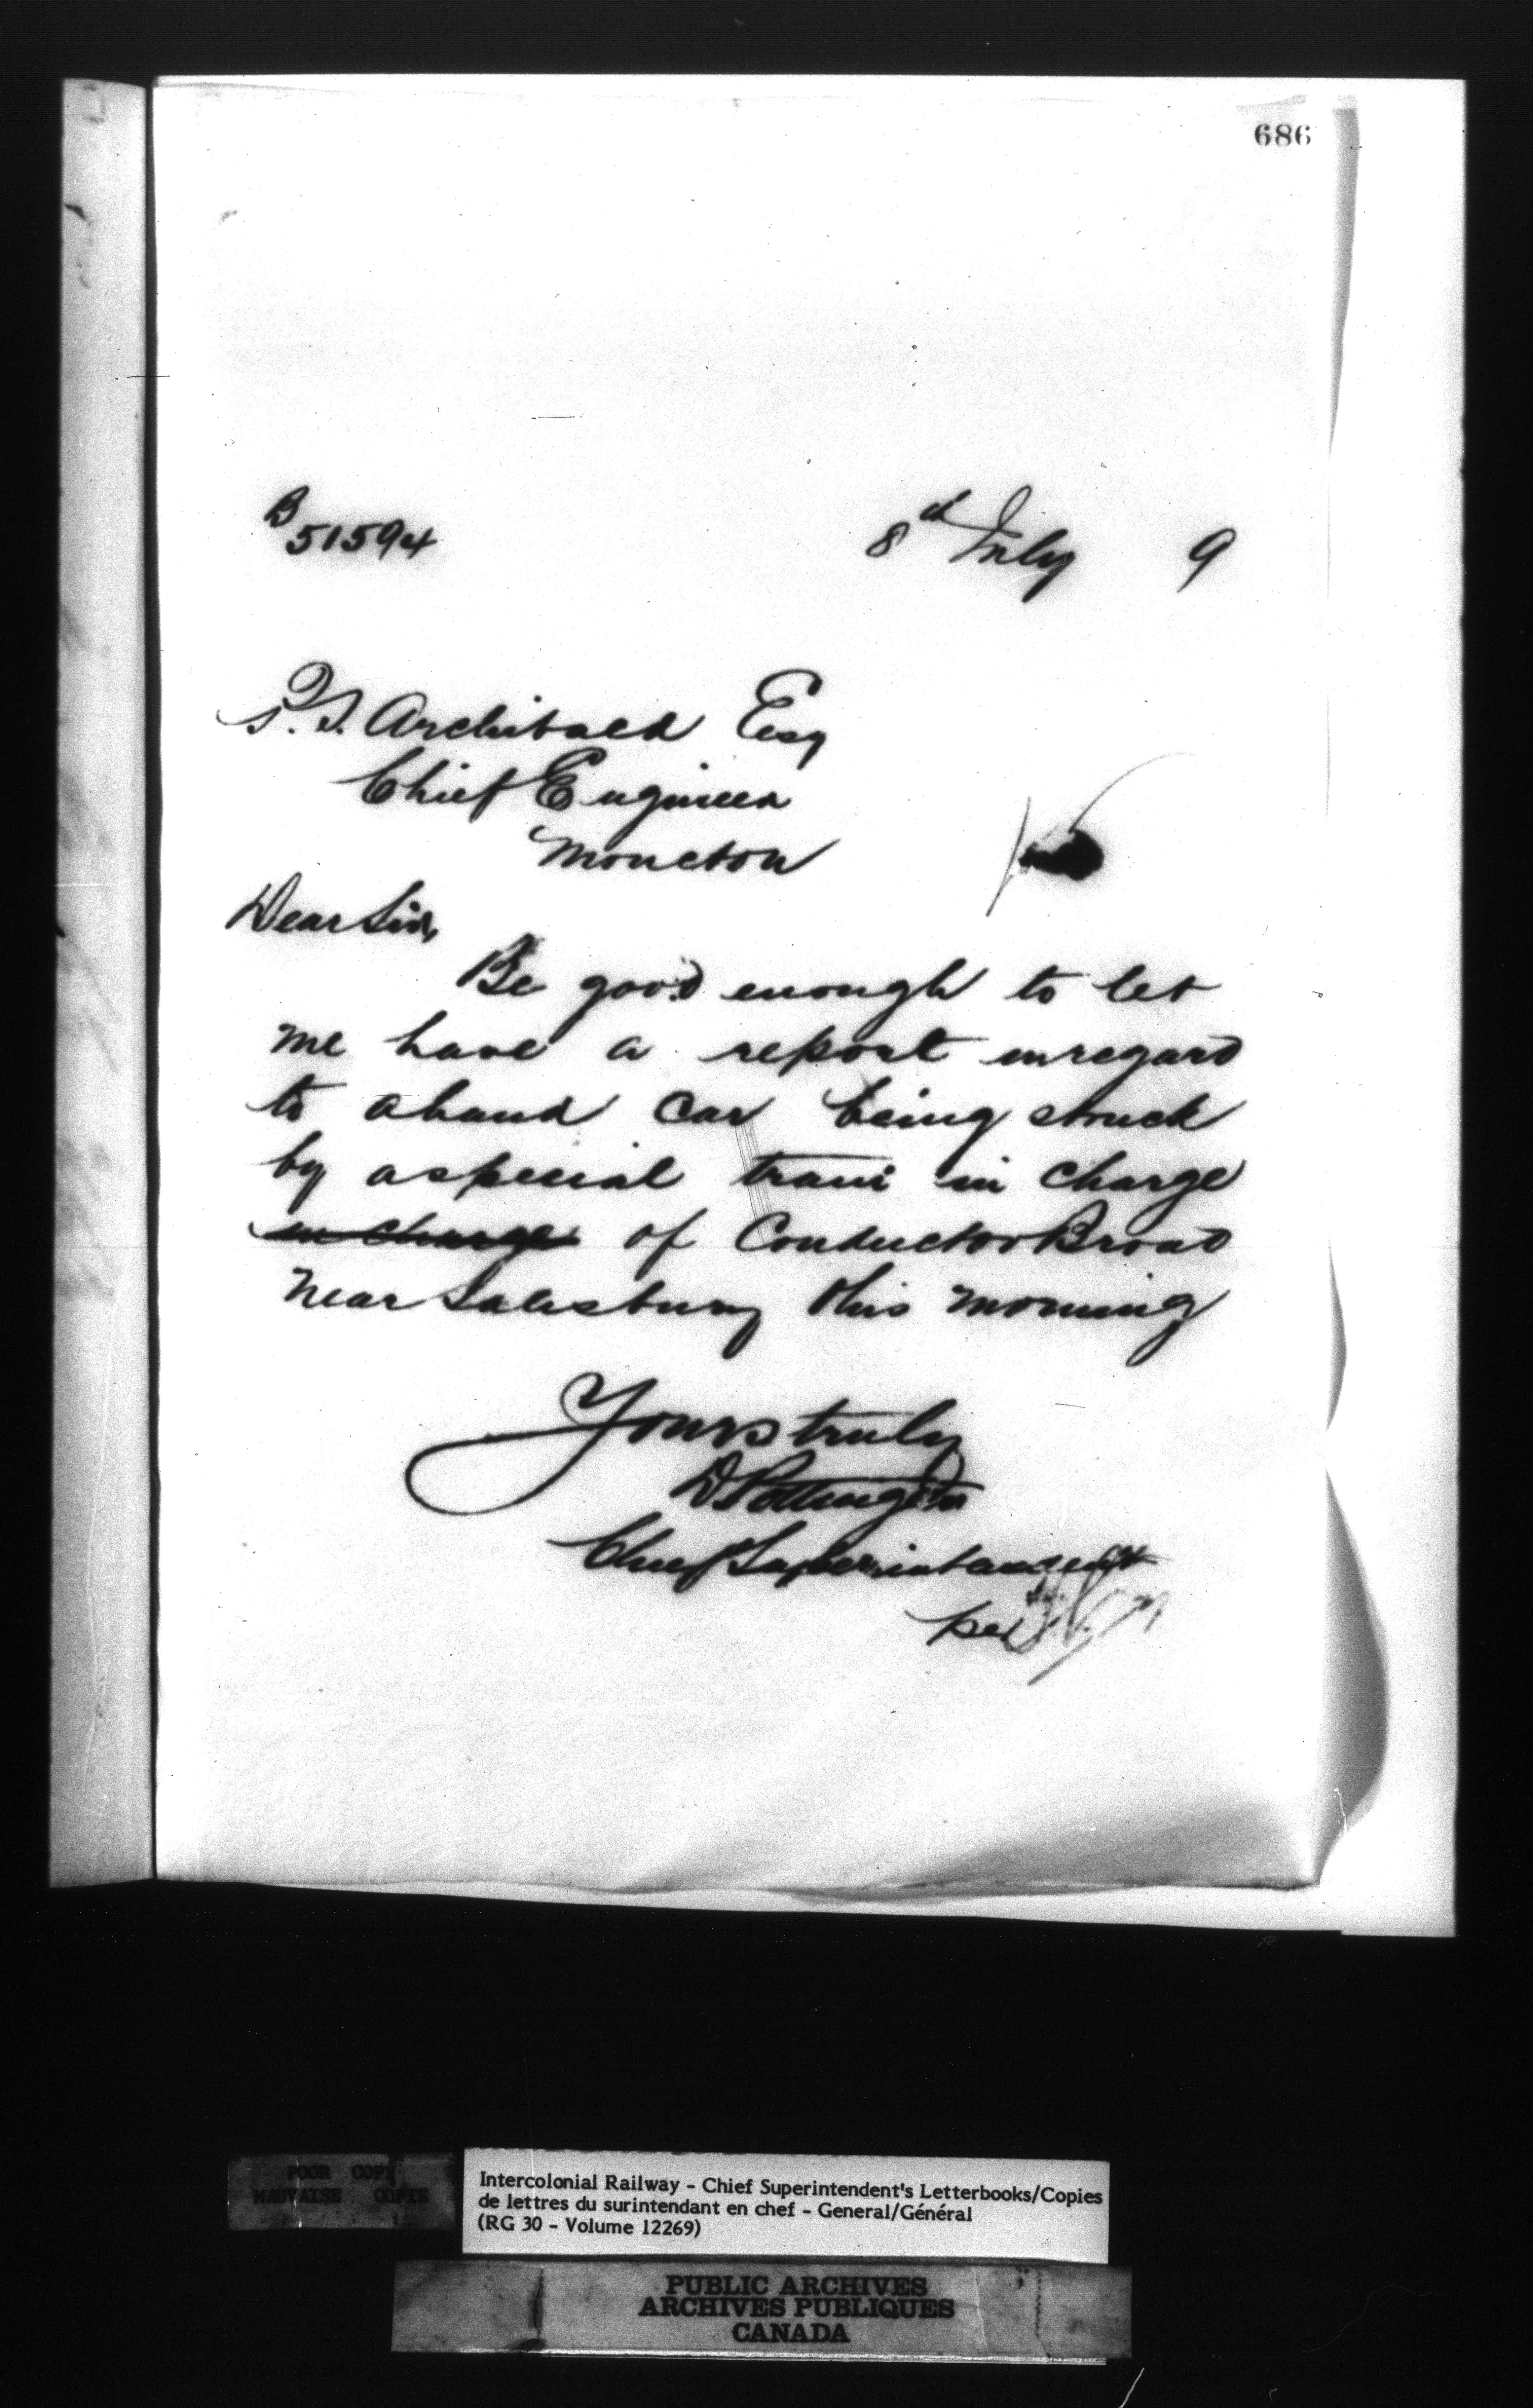 686
B
51594
8th July 9
P.S. Archibald Esq
Chief Engineer
Moncton
Dear Sir,
Be good enough to let
me have a report in regard
to a hand car being struck
by a special train in charge
in charge of Conductor Broad
near Salisbury this morning
Yours truly
D Pottinger
Chief Superintendent
per
POOR COPY
MAUVAISE COPIE
Intercolonial Railway - Chief Superintendent's Letterbooks/Copies
de lettres du surintendant en chef - General/Général
(RG 30 - Volume 12269)
PUBLIC ARCHIVES
ARCHIVES PUBLIQUES
CANADA